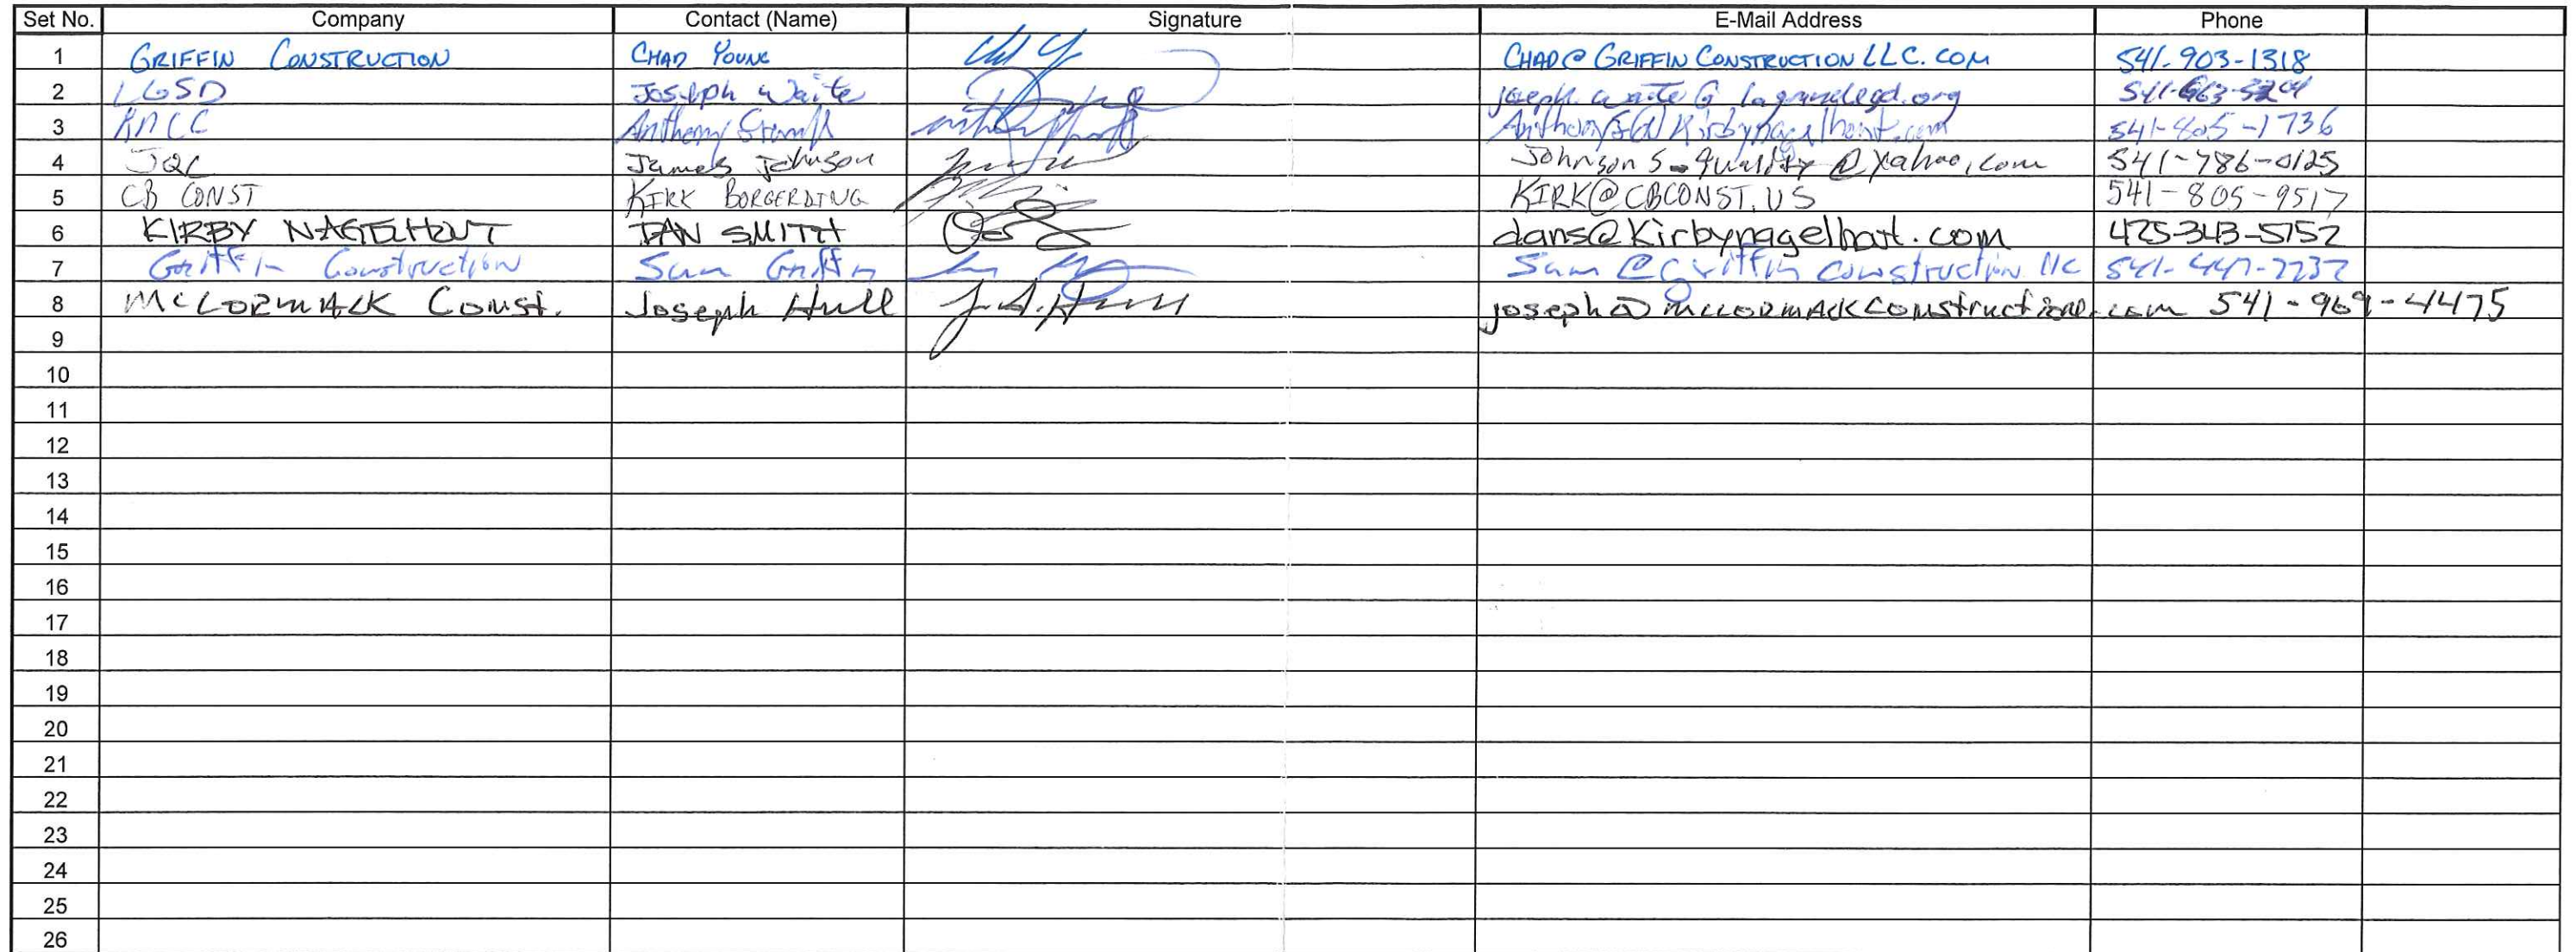 Set No. Company Contact (Name) Signature E-Mail Address Phone
1 GRIFFIN CONSTRUCTION CHAD YOUNG CHAD@GRIFFINCONSTRUCTIONLLC.COM 541-903-1318
2 LGSD Joseph Waite joseph.waite@lagrandesd.org 541-663-3201
3 KNCC Anthony 541-805-1736
4 JQC James Johnson Johnsons_quality@yahoo.com 541-786-0125
5 CB CONST KIRK BORGERDING KIRK@CBCONST.US 541-805-9517
6 KIRBY NAGELHOUT DAN SMITH dans@Kirbynagelhout.com 425-343-5152
7 Griffin Construction Sam Griffin Sam@Griffin Construction llc 541-447-7237
8 McCORMACK Const. Joseph Hull J.A. Hull joseph@McCORMACKConstruction.com 541-969-4475
9
10
11
12
13
14
15
16
17
18
19
20
21
22
23
24
25
26